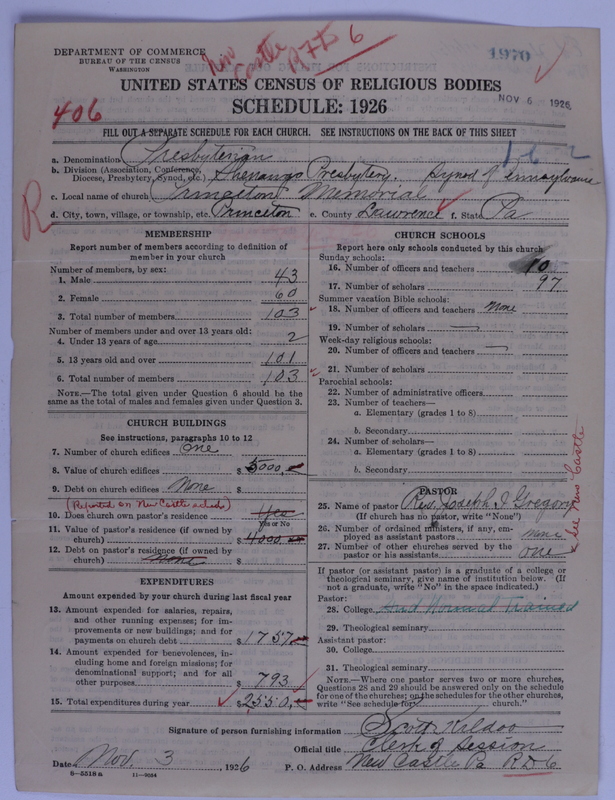 DEPARTMENT OF COMMERCE
BUREAU OF THE CENSUS
WASHINGTON
New Castle R7D 6
1970
UNITED STATES CENSUS OF RELIGIOUS BODIES
SCHEDULE: 1926
NOV 6 1926
406
FILL OUT A SEPARATE SCHEDULE FOR EACH CHURCH. SEE INSTRUCTIONS ON THE BACK OF THIS SHEET
a. Denomination Presbyterian
b. Division (Association, Conference, Diocese, Presbytery, Synod, etc.) Shenango Presbytery. Synod of Pennsylvania
c. Local name of church Princeton Memorial
d. City, town, village, or township, etc. Princeton e. County Lawrence f. State Pa
R
MEMBERSHIP
Report number of members according to definition of
member in your church
Number of members, by sex:
1. Male 43
2. Female 60
3. Total number of members 103
Number of members under and over 13 years old:
4. Under 13 years of age 2
5. 13 years old and over 101
6. Total number of members 103
NOTE.—The total given under Question 6 should be
same as the total of males and females given under Question 3.
CHURCH BUILDINGS
See instructions, paragraphs 10 to 12
7. Number of church edifices one
8. Value of church edifices $ 5000,
9. Debt on church edifices None $
(Reported on New Castle sched)
10. Does church own pastor's residence Yes
Yes or No
11. Value of pastor's residence (if owned by
church) $ 4000,
12. Debt on pastor's residence (if owned by
church) none $
EXPENDITURES
Amount expended by your church during last fiscal year
13. Amount expended for salaries, repairs,
and other running expenses; for im-
provements or new buildings; and for
payments on church debt $ 1757
14. Amount expended for benevolences,
including home and foreign missions; for
denominational support; and for all
other purposes $ 793
15. Total expenditures during year $ 2550,
CHURCH SCHOOLS
Report here only schools conducted by this church
Sunday schools:
16. Number of officers and teachers 10
17. Number of scholars 97
Summer vacation Bible schools:
18. Number of officers and teachers None
19. Number of scholars
Week-day religious schools:
20. Number of officers and teachers
21. Number of scholars
Parochial schools:
22. Number of administrative officers
23. Number of teachers—
a. Elementary (grades 1 to 8)
b. Secondary
24. Number of scholars—
a. Elementary (grades 1 to 8)
b. Secondary
PASTOR
25. Name of pastor Rev. Joseph I. Gregory
(If church has no pastor, write "None")
26. Number of ordained ministers, if any, em-
ployed as assistant pastors none
27. Number of other churches served by the
pastor or his assistants one
See New Castle
If pastor (or assistant pastor) is a graduate of a college or
theological seminary, give name of institution below. (If
not a graduate, write "No" in the space indicated.)
Pastor:
28. College And Normal Trained
29. Theological seminary
Assistant pastor:
30. College
31. Theological seminary
NOTE.—Where one pastor serves two or more churches,
Questions 28 and 29 should be answered only on the schedule
for one of the churches; on the schedules for the other churches,
write "See schedule for church."
Signature of person furnishing information Scott Kildoo
Official title Clerk of Session
Date Nov. 3, 1926 P. O. Address New Castle Pa R.D 6
8—5518 a 11—9034